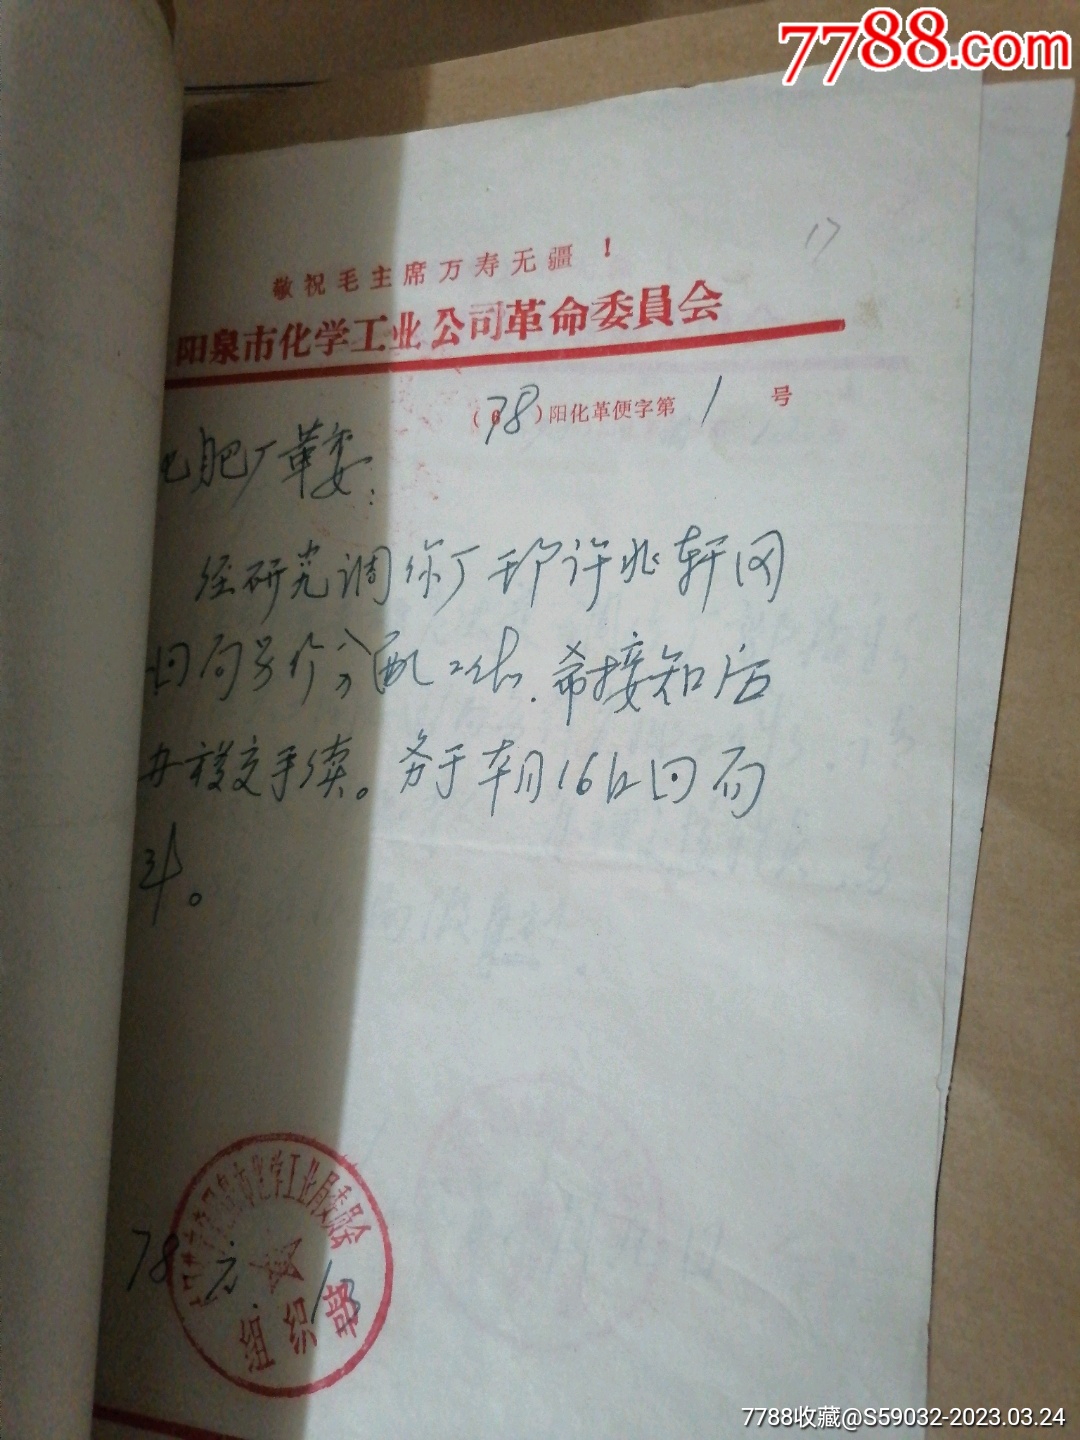 7788.com
17
敬祝毛主席万寿无疆！
阳泉市化学工业公司革命委員会
(78)阳化革便字第1号
化肥厂革委：
经研究调你厂 许兆轩同
回局另行分配工作.希接知后
办移交手续。务于本月16日回局
。
78 元.13
阳泉市化学工业局委员会
组织部
7788收藏@S59032-2023.03.24